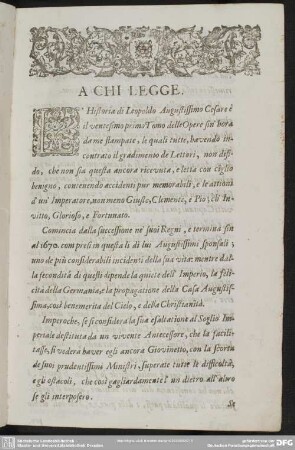 A CHI LEGGE.
L'Historia di Leopoldo Augustissimo Cesare è
il ventesimo primo Tomo delle Opere sin' hora
da me stampate, le quali tutte, havendo in-
contrato il gradimento de' Lettori, non diffi-
do, che non sia questa ancora ricevuta, e letta con ciglio
benigno, contenendo accidenti pur memorabili, e le attioni
d' un' Imperatore, non meno Giusto, Clemente, e Pio; ch' In-
vitto, Glorioso, e Fortunato.
Comincia dalla successione ne' suoi Regni, e termina sin
al 1670. compresi in questa li di lui Augustissimi sponsali;
uno de più considerabili incidenti della sua vita: mentre dal-
la fecondità di questi dipende la quiete dell' Imperio, la feli-
cità della Germania, e la propagatione della Casa Augustis-
sima, così benemerita del Cielo, e della Christianità.
Imperoche, se si considera la sua esaltatione al Soglio Im-
periale destituta da un vivente Antecessore, che la facili-
tasse, si vederà haver egli ancora Giovinetto, con la scorta
de suoi prudentissimi Ministri, superate tutte le difficoltà,
e gli ostacoli, che così gagliardamente l' un dietro all' altro
se gli interposero.
Se